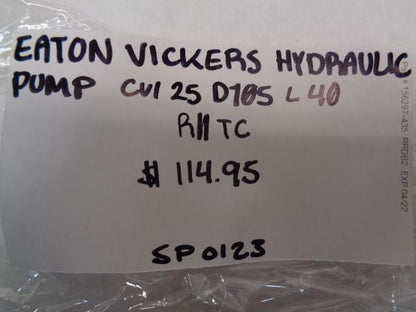 EATON VICKERS HYDRAULIC
PUMP CVI 25 D105 L 40
R11 TC
$ 114.95
SP0123
156297-435 RRDB2 EXP 04/22